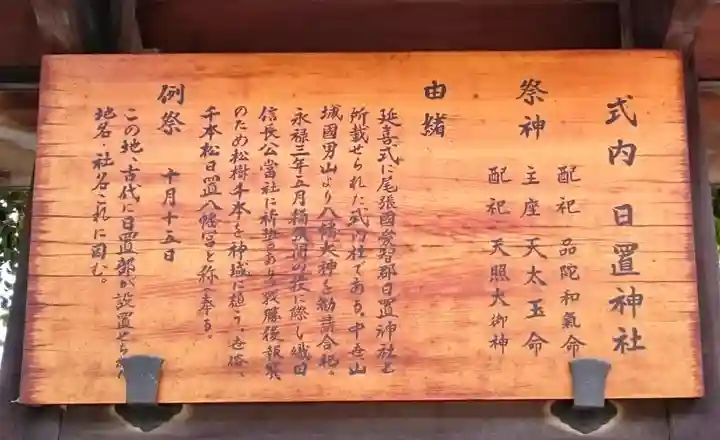 式内 日置神社
祭神
配祀 品陀和氣命
主座 天太玉命
配祀 天照大御神
由緒
延喜式に尾張國愛智郡日置神社と
所載せられた式内社である。中世山
城國男山より八幡大神を勧請合祀。
永禄三年五月桶狭間の役に際し織田
信長公當社に祈誓あり。戦勝後報賽
のため松樹千本を神域に植う。世俗、
千本松日置八幡宮と称え奉る。
例祭 十月十五日
この地、古代に日置部が設置せら
地名・社名これに因む。